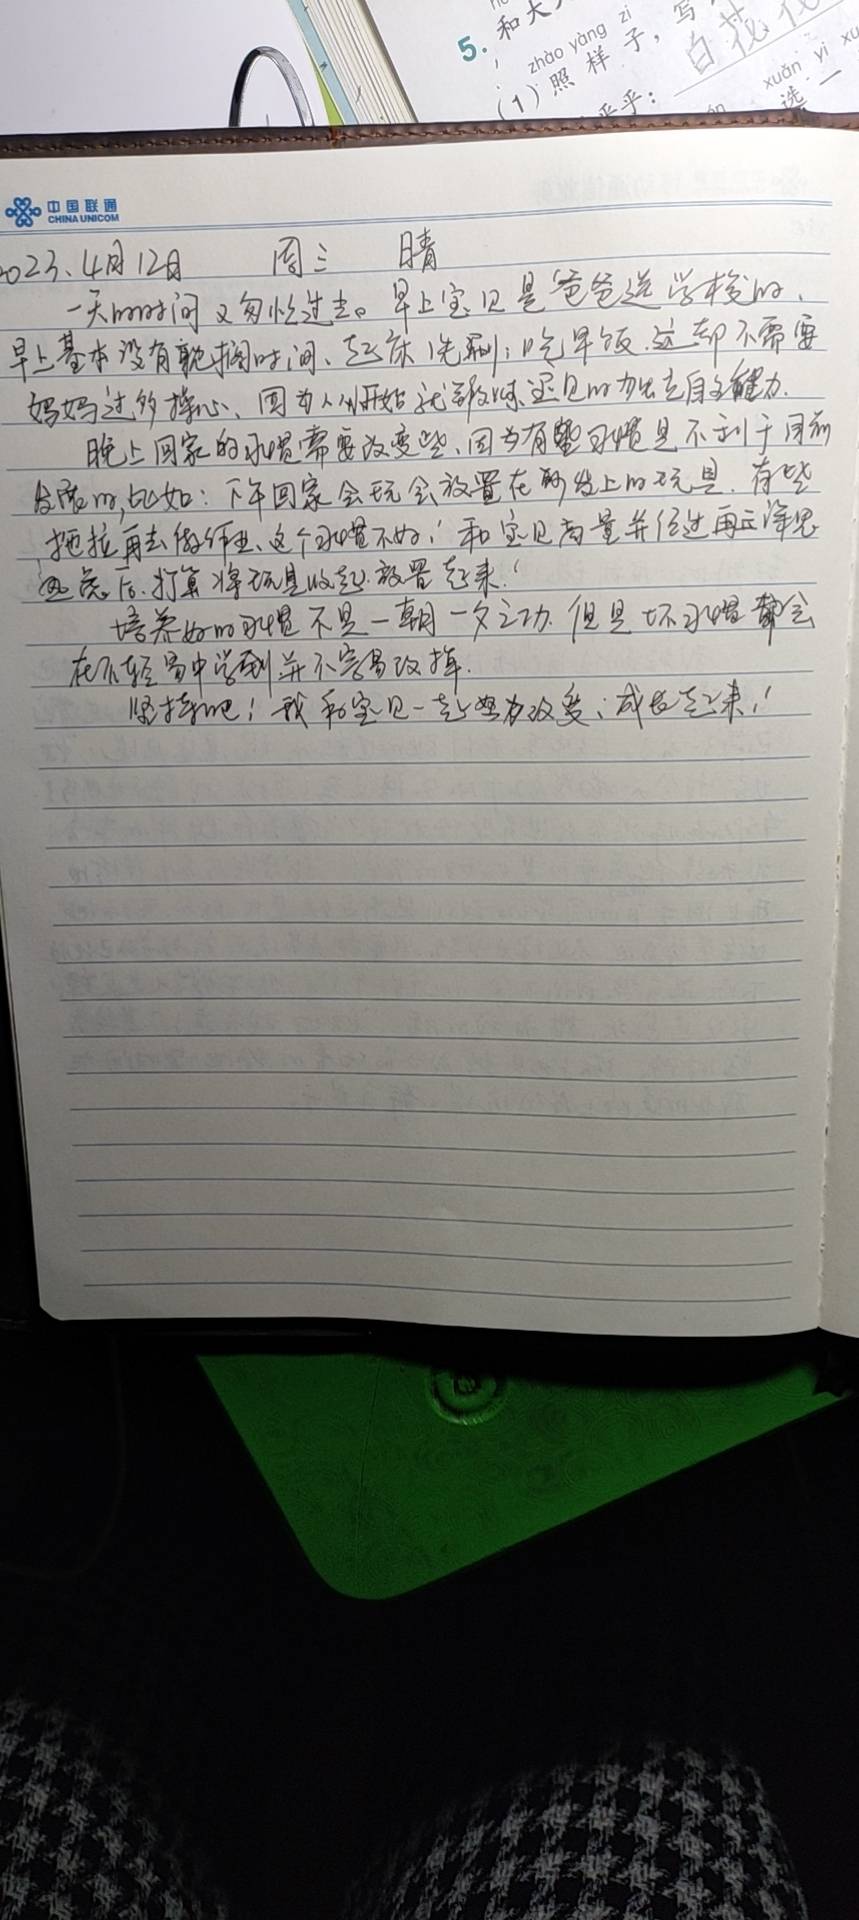 5. 和大
zhào yàng zi
(1) 照样子，写
平平： 白花花
xuǎn yi xu
选一
中国联通
CHINA UNICOM
2023.4月12日 周三 晴
一天的时间又匆忙过去。早上宝贝是爸爸送学校的、
早上基本没有耽搁时间、起床洗刷；吃早饭.这都不需要
妈妈过多操心、因为从开始就锻炼宝贝的独立自主能力.
晚上回家的习惯需要改变些、因为有些习惯是不利于目前
发展的,比如：下午回家会玩会放置在沙发上的玩具.有些
拖拉再去做作业、这个习惯不好！和宝贝商量并经过再三深思
熟虑后.打算将玩具收起.放置起来！
培养好的习惯不是一朝一夕之功.但是坏习惯都会
在不轻易中学到并不容易改掉.
坚持吧！我和宝贝一起努力改变；成长起来！